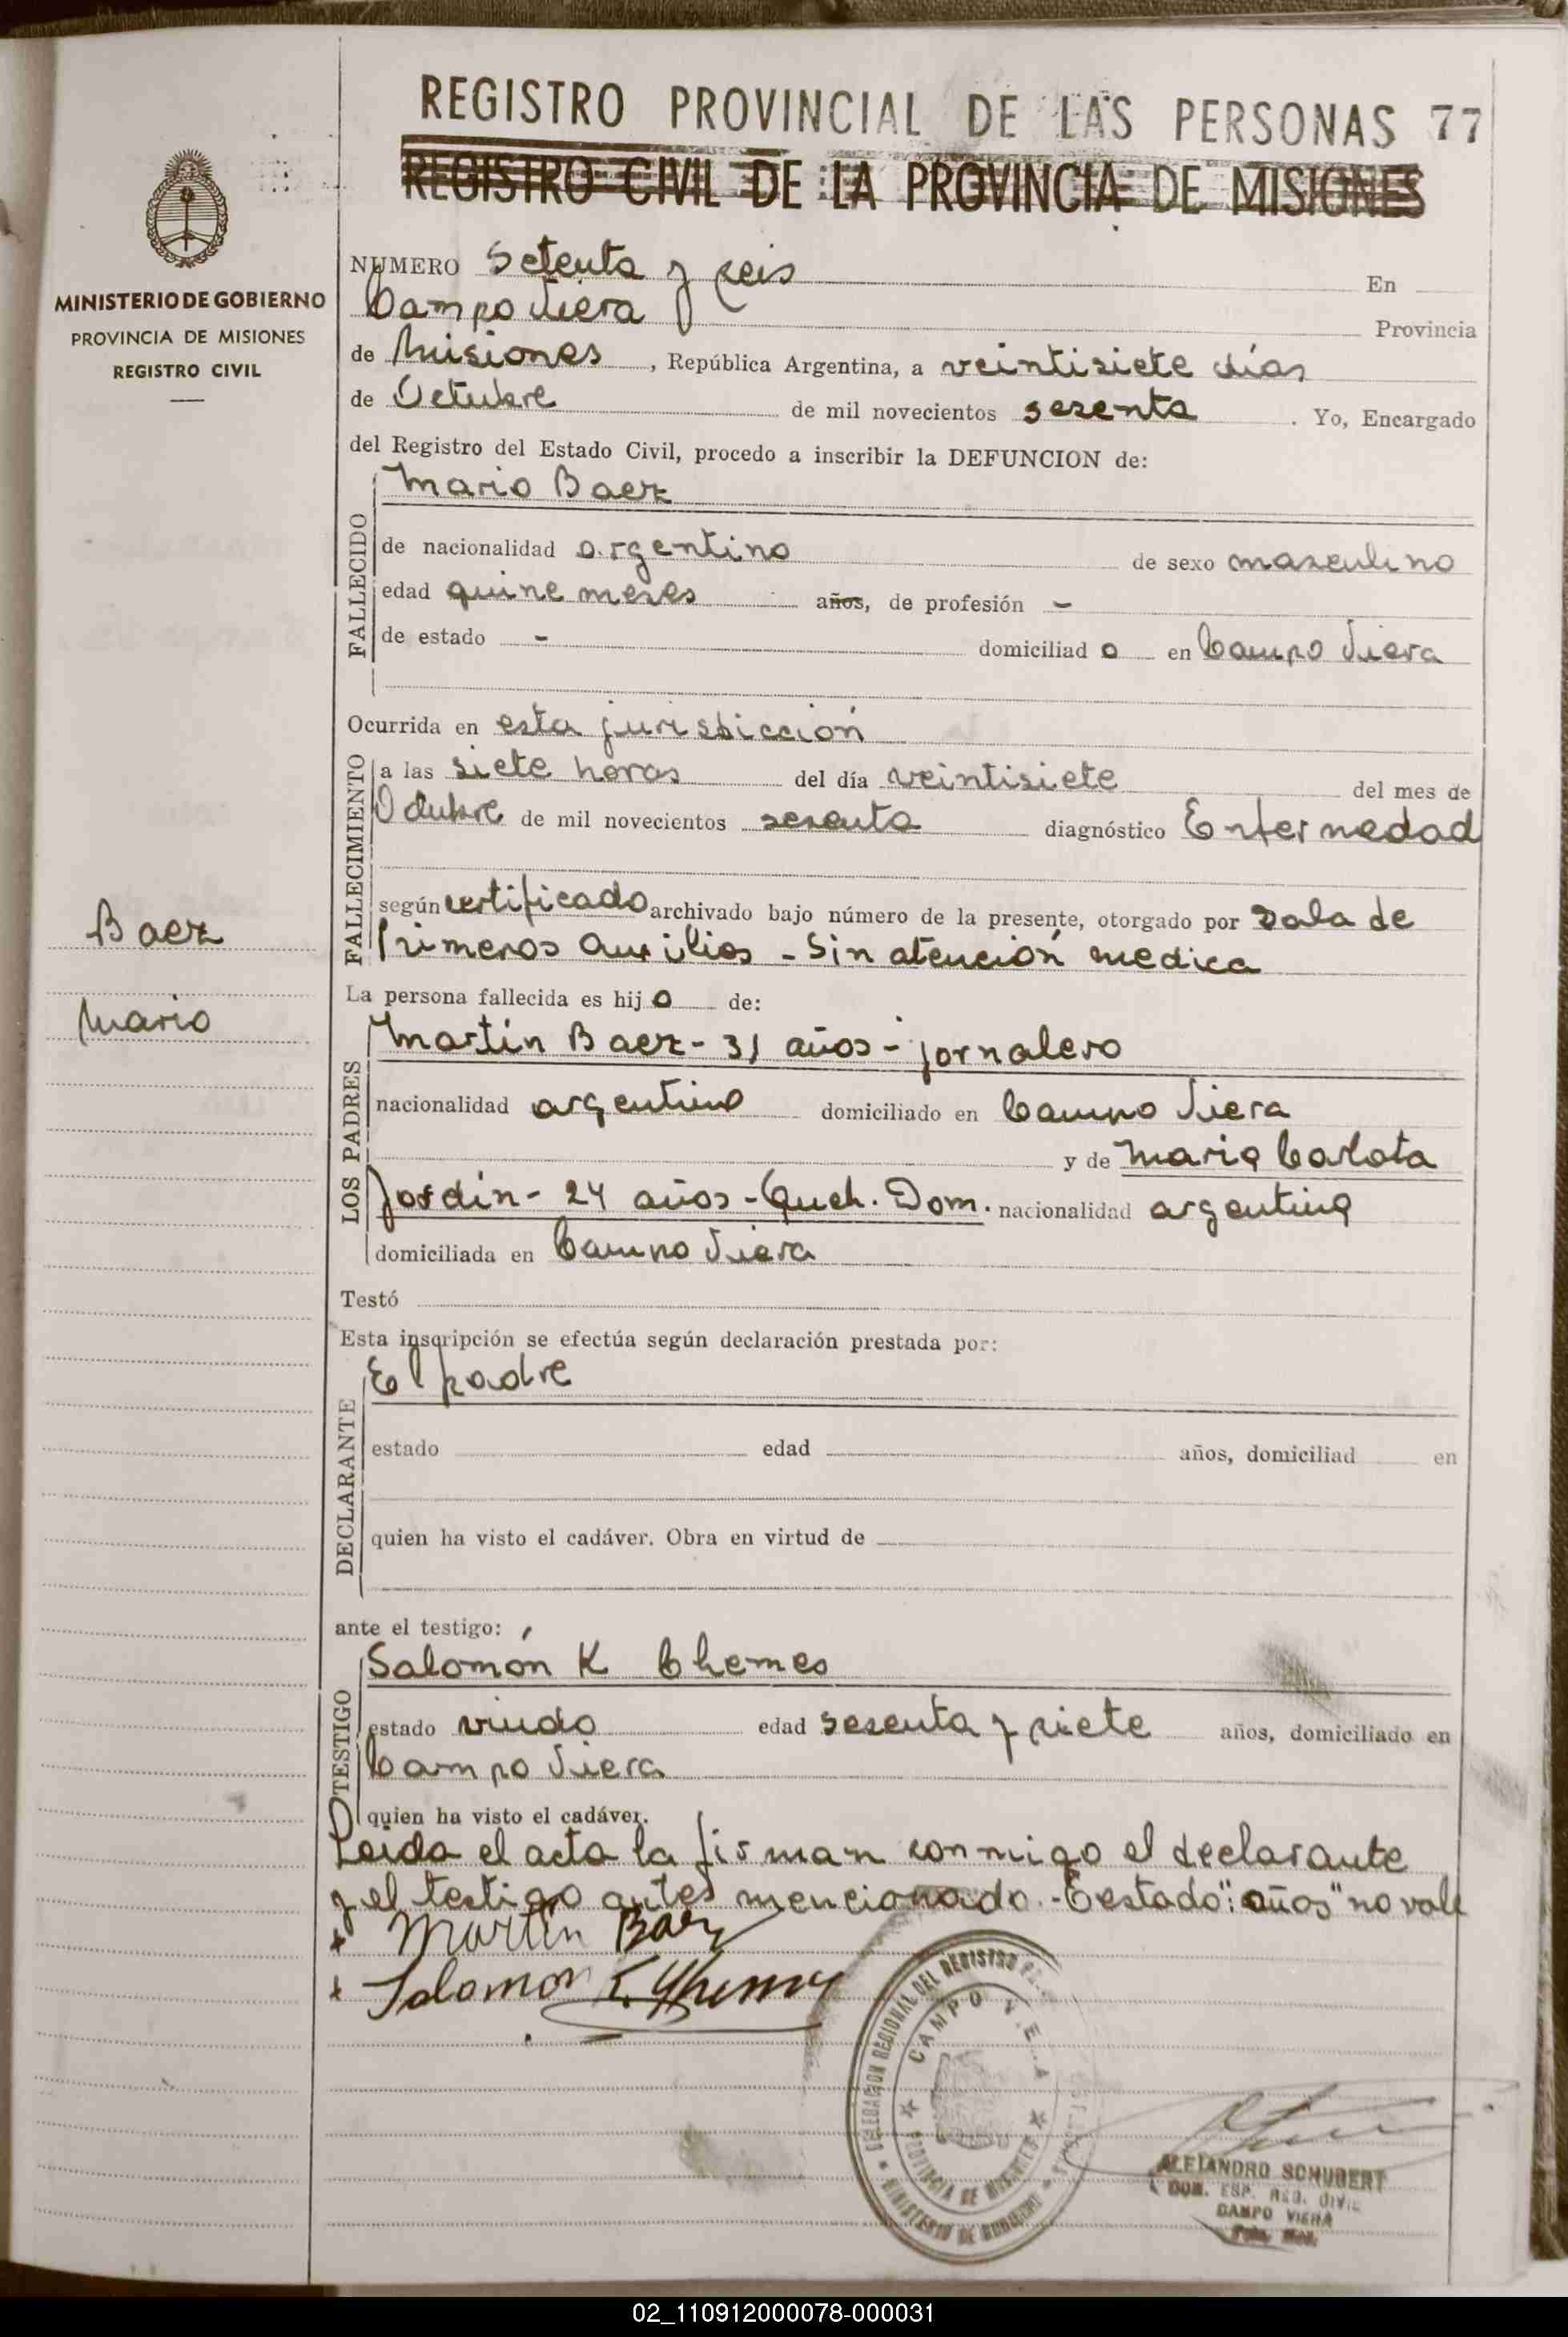 REGISTRO PROVINCIAL DE LAS PERSONAS 77
REGISTRO CIVIL DE LA PROVINCIA DE MISIONES
MINISTERIO DE GOBIERNO
PROVINCIA DE MISIONES
REGISTRO CIVIL
NUMERO Setenta y seis En
Campo Viera Provincia
de Misiones, República Argentina, a veintisiete días
de Octubre de mil novecientos sesenta. Yo, Encargado
del Registro del Estado Civil, procedo a inscribir la DEFUNCION de:
Mario Baez
FALLECIDO
de nacionalidad argentino de sexo masculino
edad quince meses años, de profesión -
de estado - domiciliad o en Campo Viera
Ocurrida en esta jurisdicción
FALLECIMIENTO
a las siete horas del día veintisiete del mes de
Octubre de mil novecientos sesenta diagnóstico Enfermedad
según certificado archivado bajo número de la presente, otorgado por Sala de
Primeros Auxilios - Sin atención medica
Baez
Mario
La persona fallecida es hij o de:
LOS PADRES
Martín Baez - 31 años - jornalero
nacionalidad argentino domiciliado en Campo Viera
y de Maria Carlota
Jordín - 24 años - Queh. Dom. nacionalidad argentina
domiciliada en Campo Viera
Testó
Esta inscripción se efectúa según declaración prestada por:
El padre
DECLARANTE
estado edad años, domiciliad en
quien ha visto el cadáver. Obra en virtud de
ante el testigo:
Salomón K Chemes
TESTIGO
estado viudo edad sesenta y siete años, domiciliado en
Campo Viera
quien ha visto el cadáver.
Leida el acta la firman conmigo el declarante
y el testigo antes mencionado.- Testado: "años" no vale
Martín Baez
Salomon
DELEGACION REGIONAL DEL REGISTRO
CAMPO VIERA
PROVINCIA DE MISIONES
MINISTERIO DE GOBIERNO
ALEJANDRO SCHUBERT
CAMPO VIERA
02_110912000078-000031